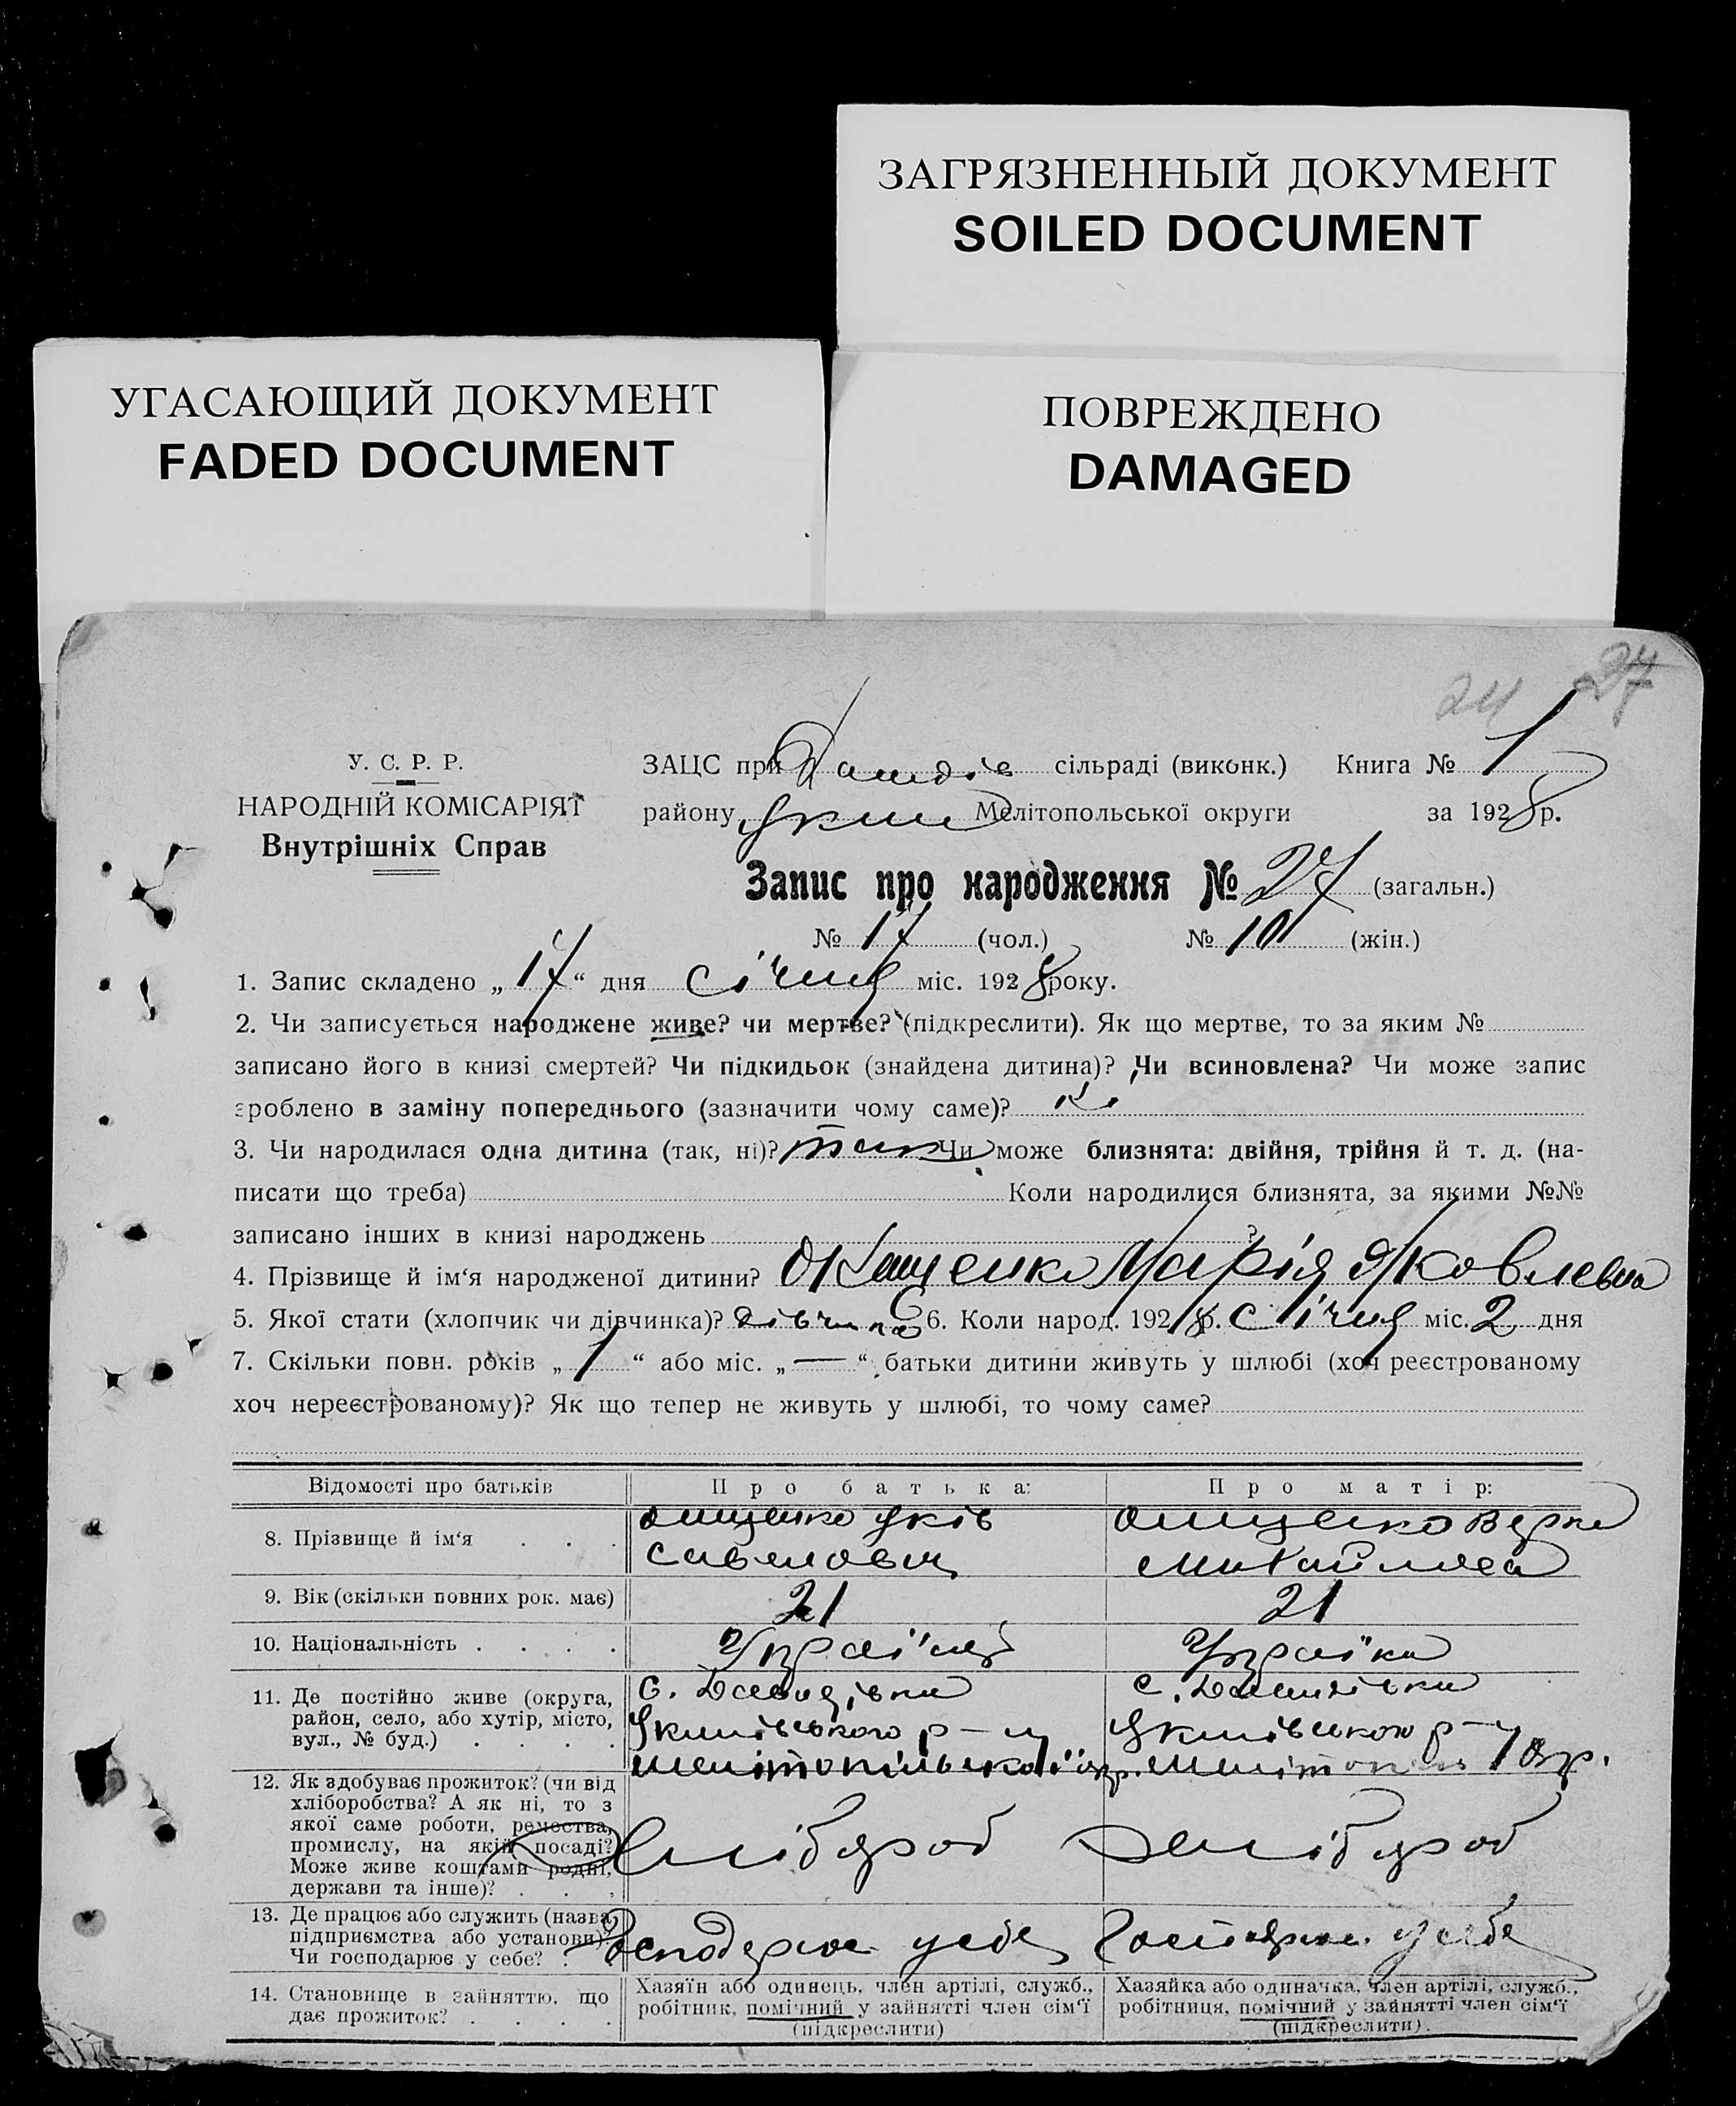 ЗАГРЯЗНЕННЫЙ ДОКУМЕНТ
SOILED DOCUMENT
УГАСАЮЩИЙ ДОКУМЕНТ
FADED DOCUMENT
ПОВРЕЖДЕНО
DAMAGED
24 27
У. С. Р. Р.
НАРОДНІЙ КОМІСАРІЯТ
Внутрішніх Справ
ЗАЦС при сільраді (виконк.) Книга № 1
району Мелітопольської округи за 1928 р.
Запис про народження № 27 (загальн.)
№ 17 (чол.) № 10 (жін.)
1. Запис складено „ 17 “ дня січня міс. 1928 року.
2. Чи записується народжене живе? чи мертве? (підкреслити). Як що мертве, то за яким №
записано його в книзі смертей? Чи підкидьок (знайдена дитина)? Чи всиновлена? Чи може запис
зроблено в заміну попереднього (зазначити чому саме)? ні
3. Чи народилася одна дитина (так, ні)? так Чи може близнята: двійня, трійня й т. д. (на-
писати що треба) Коли народилися близнята, за якими №№
записано інших в книзі народжень ?
4. Прізвище й ім‘я народженої дитини? Марія Яковлевна
5. Якої стати (хлопчик чи дівчинка)? дівчина 6. Коли народ. 1928 р. січня міс. 2 дня
7. Скільки повн. років „ 1 “ або міс. „ — “ батьки дитини живуть у шлюбі (хоч реєстрованому
хоч нереєстрованому)? Як що тепер не живуть у шлюбі, то чому саме?
Відомості про батьків Про батька: Про матір:
8. Прізвище й ім‘я . . . Онищенко Яків Онищенко
Савелович Михайловна
9. Вік (скільки повних рок. має) 21 21
10. Національність . . . . Українец Українка
11. Де постійно живе (округа, район, село, або хутір, місто, вул., № буд.) . . . . с. Давидівка с. Давидівка
Якимівського р-ну Якимівського р-ну
Мелітопільської окр. Мелітопільс окр.
12. Як здобуває прожиток? (чи від
хліборобства? А як ні, то з
якої саме роботи, ремества,
промислу, на якій посаді?
Може живе коштами родні,
держави та інше)? . . . Хлібороб Хлібороб
13. Де працює або служить (назва
підприємства або установи)?
Чи господарює у себе? . Господарює у себе Господарює у себе
14. Становище в зайняттю, що
дає прожиток? . . . .
Хазяїн або одинець, член артілі, служб.,
робітник, помічний у зайнятті член сім‘ї
(підкреслити)
Хазяйка або одиначка, член артілі, служб.,
робітниця, помічний у зайнятті член сім‘ї
(підкреслити).